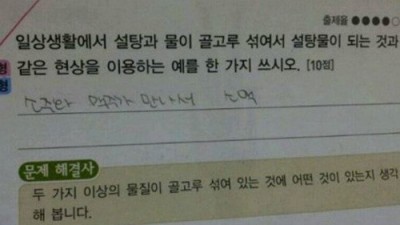 출제율
일상생활에서 설탕과 물이 골고루 섞여서 설탕물이 되는 것과
같은 현상을 이용하는 예를 한 가지 쓰시오. [10점]
형
형
소주와 맥주가 만나서 소맥
문제 해결사
두 가지 이상의 물질이 골고루 섞여 있는 것에 어떤 것이 있는지 생각
해 봅니다.